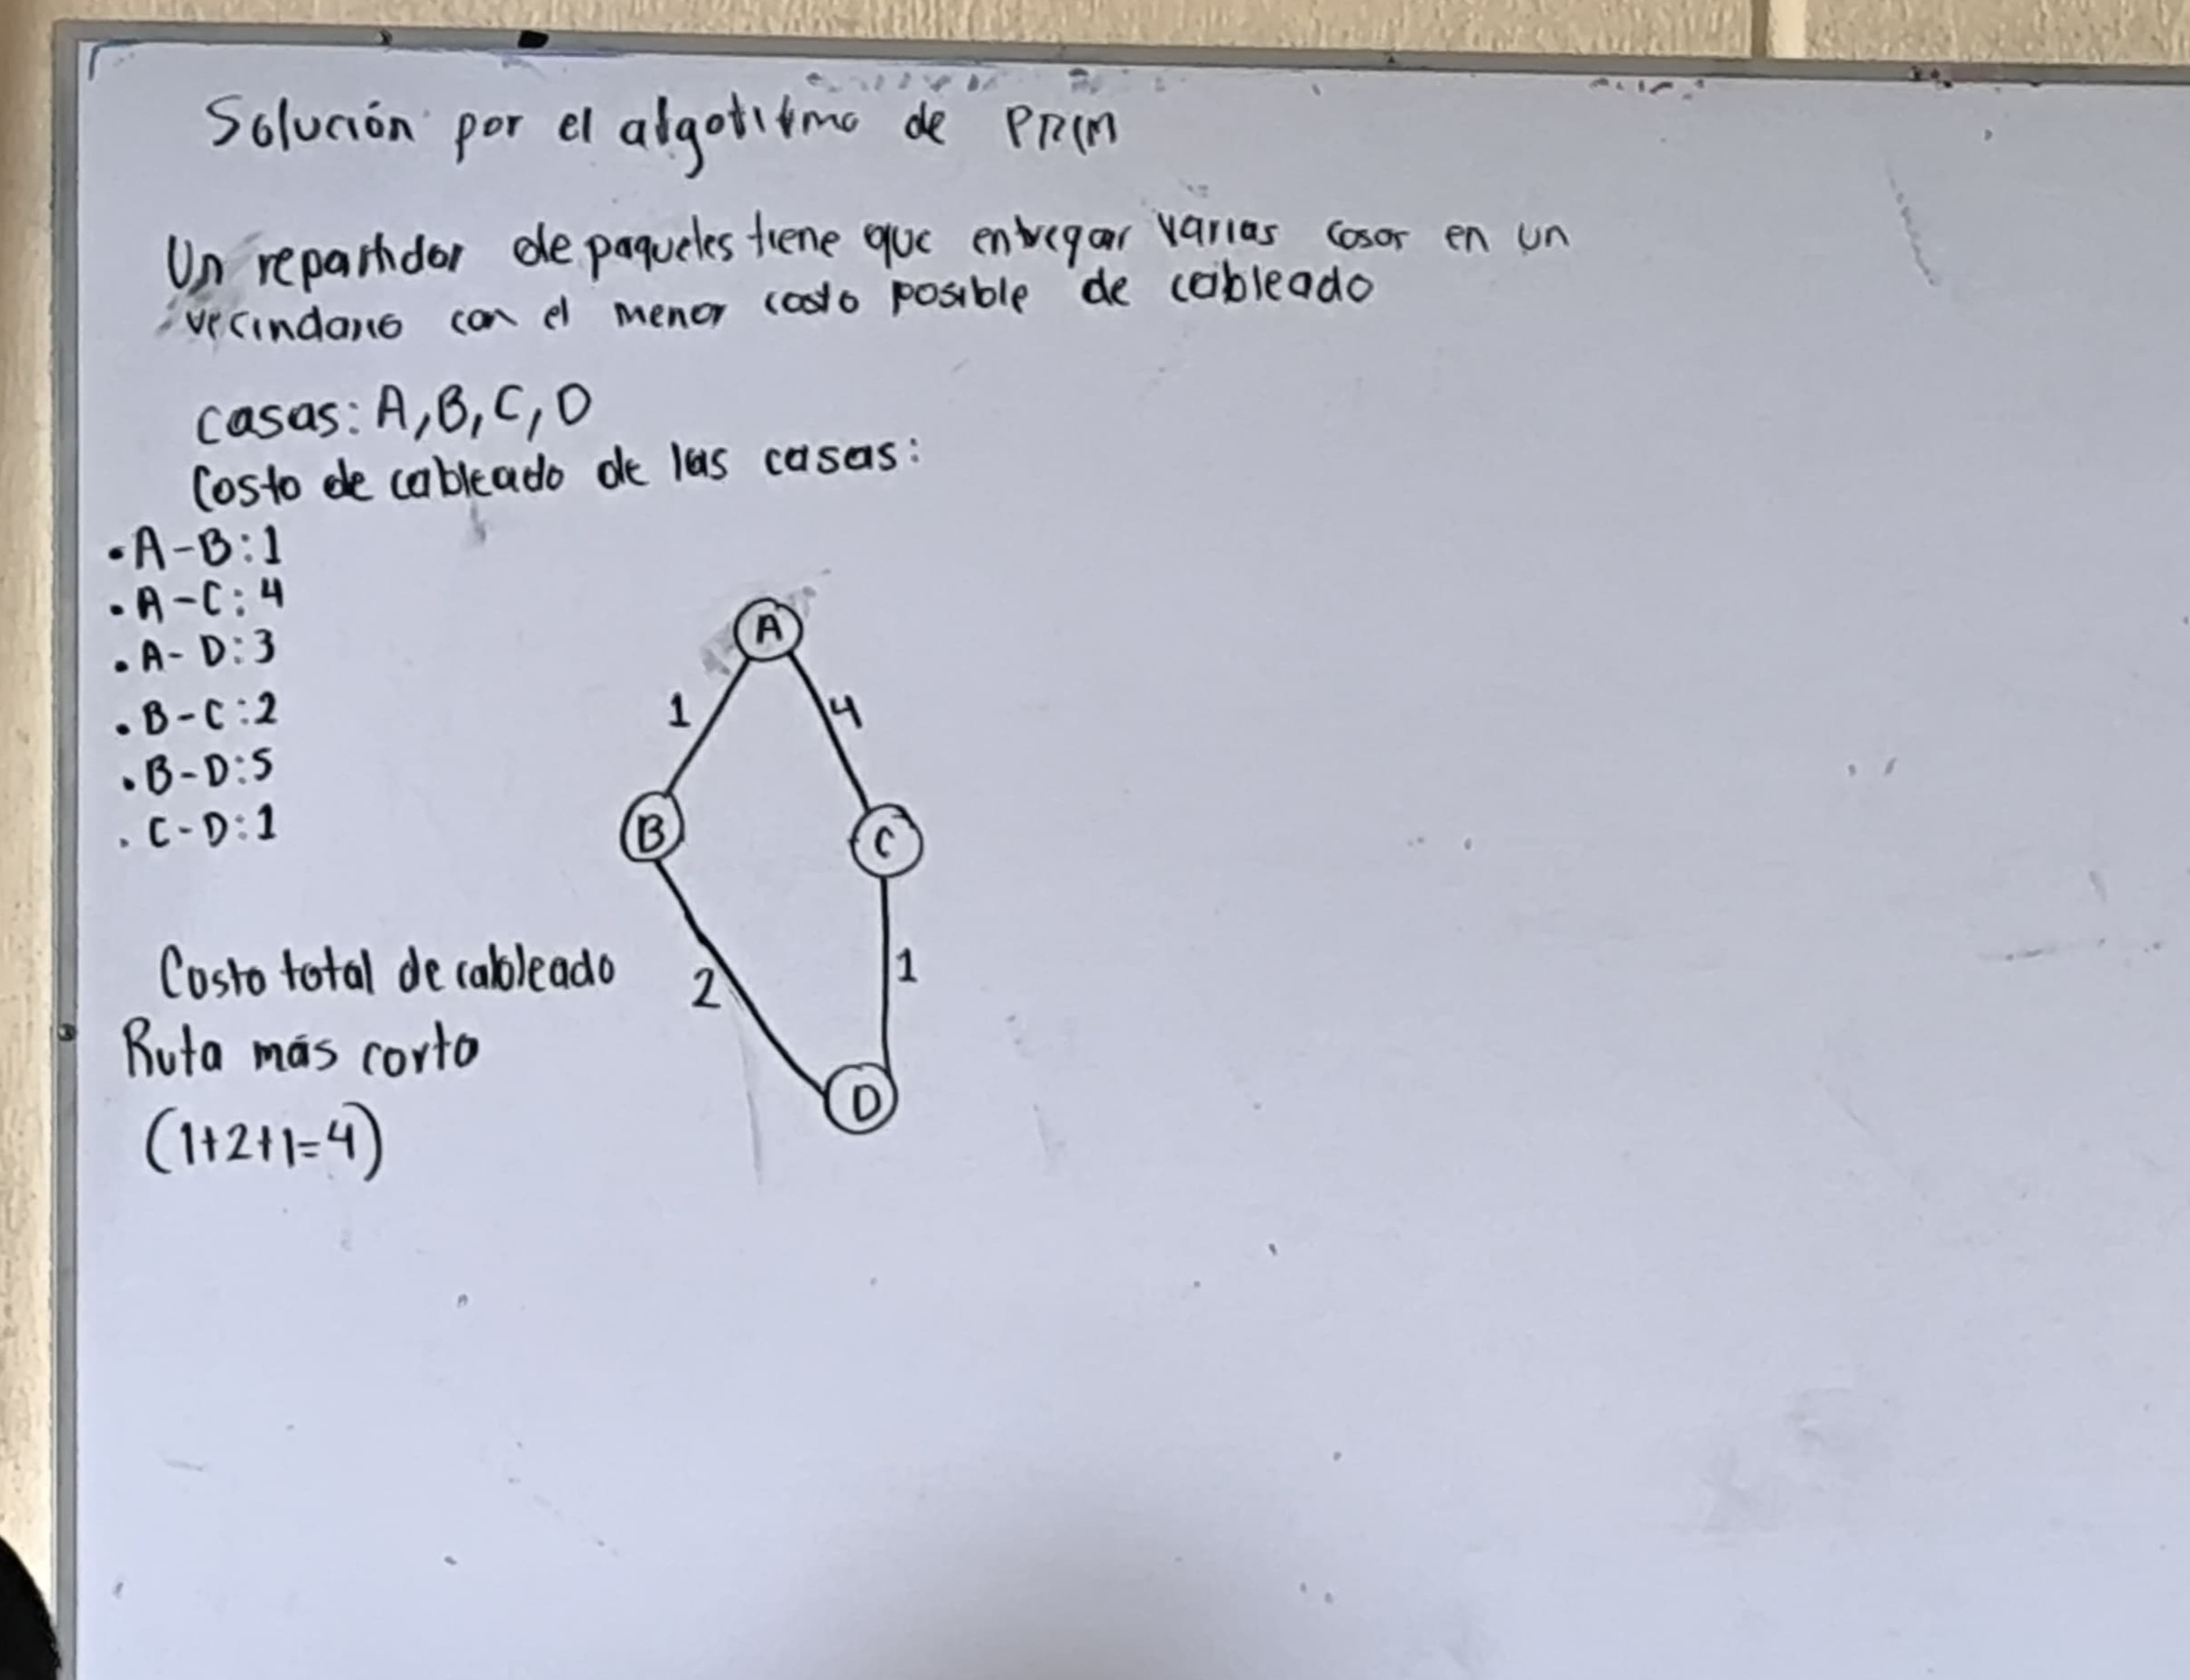 Solución por el algoritmo de PRIM
Un repartidor de paquetes tiene que entregar varias cosas en un
vecindario con el menor costo posible de cableado
casas: A, B, C, D
Costo de cableado de las casas:
• A-B: 1
• A-C: 4
• A-D: 3
• B-C: 2
• B-D: 5
• C-D: 1
A
1
4
B
C
Costo total de cableado
2
1
Ruta más corto
D
(1+2+1=4)